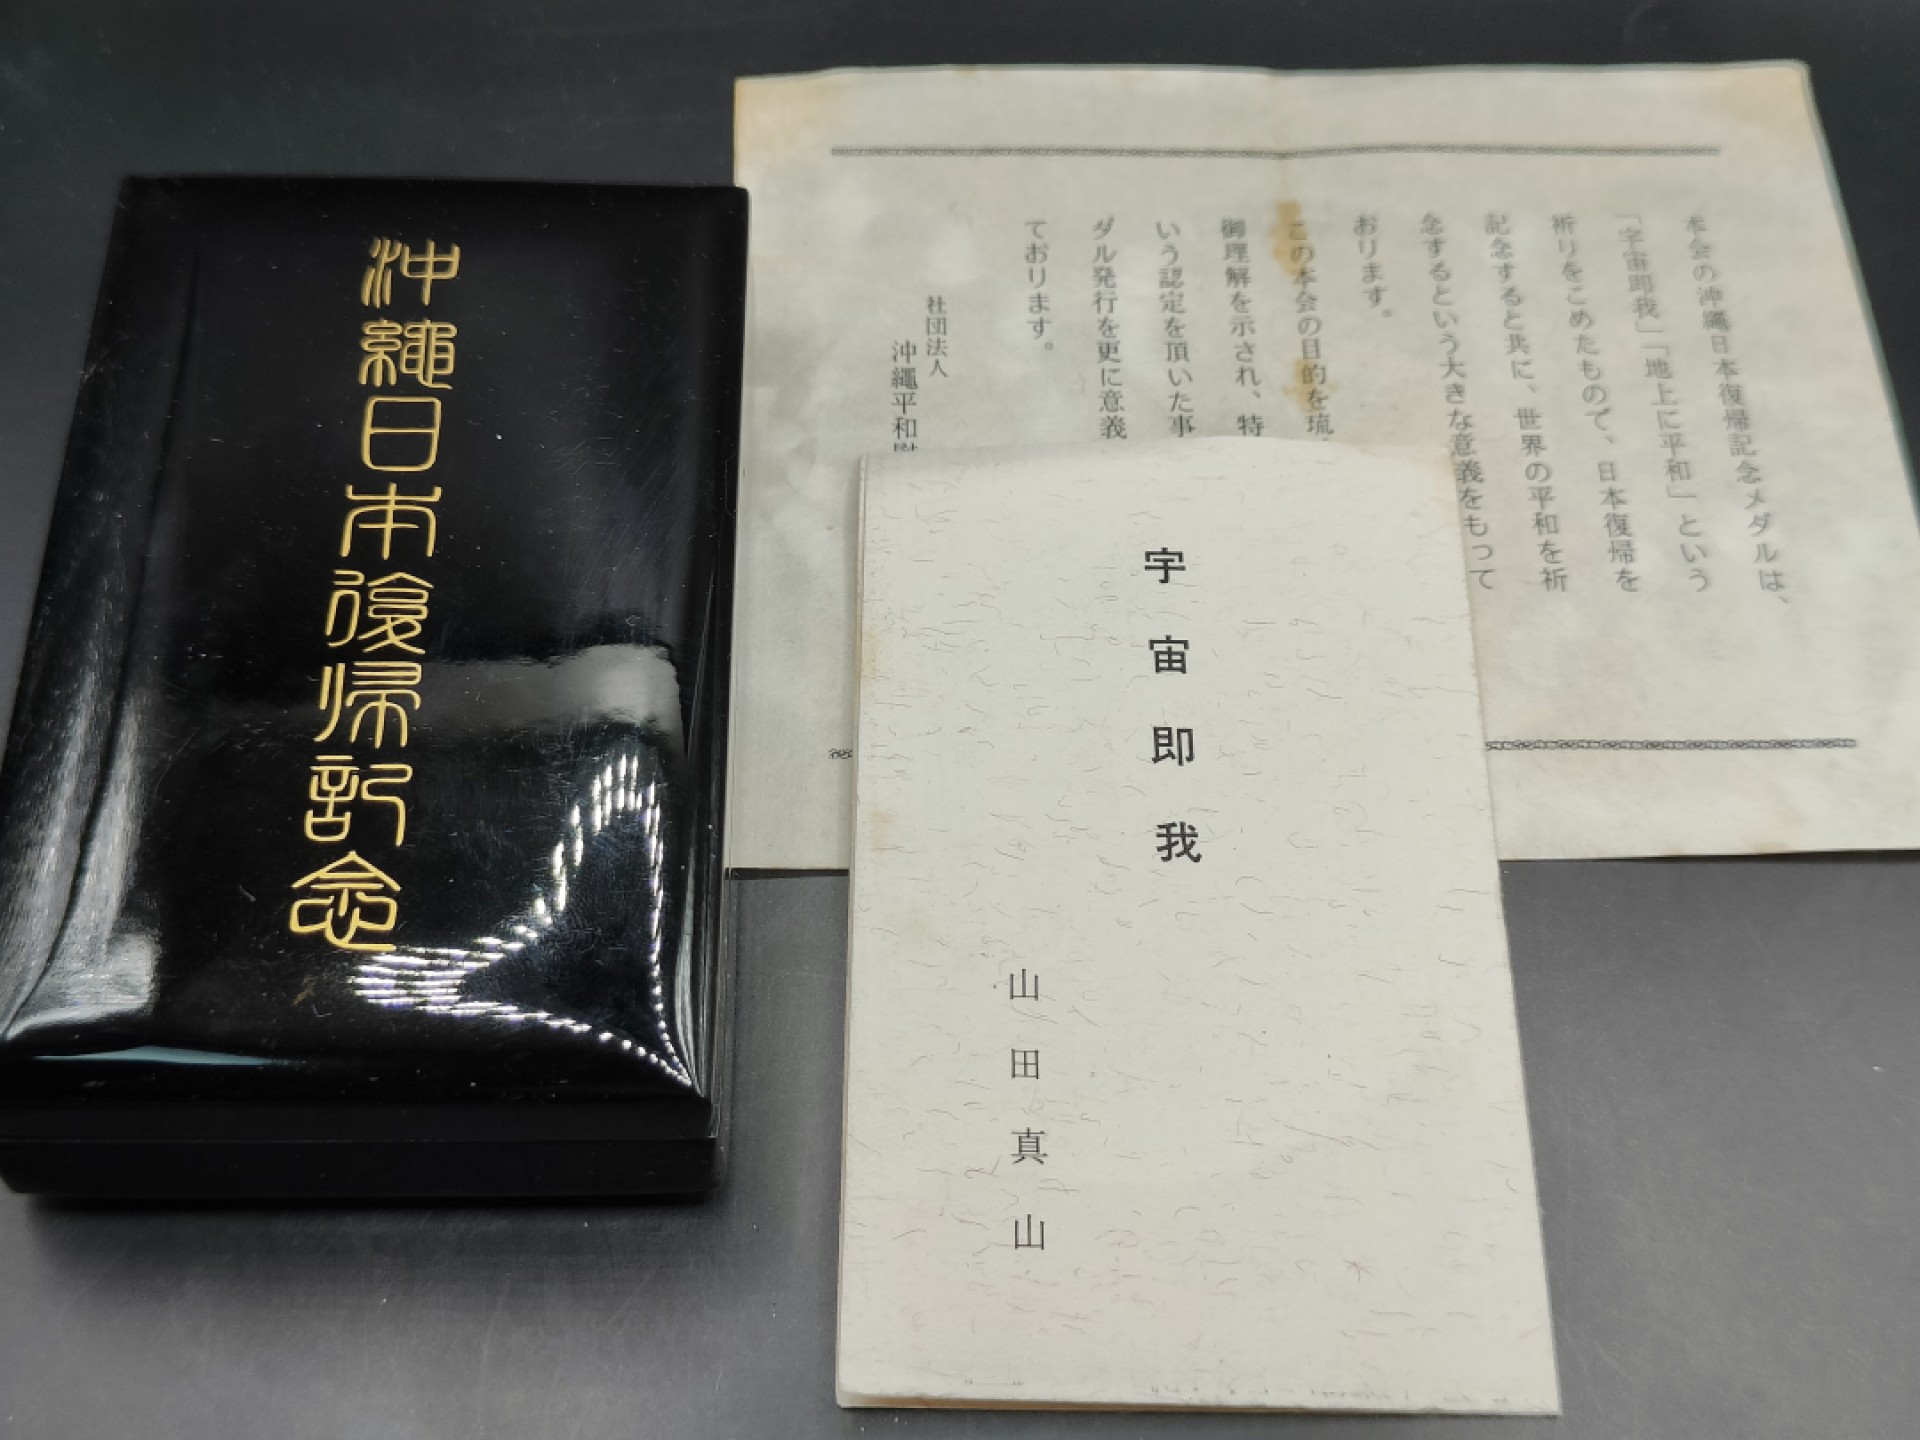 沖縄日本復帰記念
本会の沖縄日本復帰記念メダルは、
「宇宙即我」「地上に平和」という
祈りをこめたもので、日本復帰を
記念すると共に、世界の平和を祈
念するという大きな意義をもって
おります。
この本会の目的を琉
御理解を示され、特
いう認定を頂いた事
ダル発行を更に意義
ております。
社団法人
沖縄平和
宇宙即我
山田真山